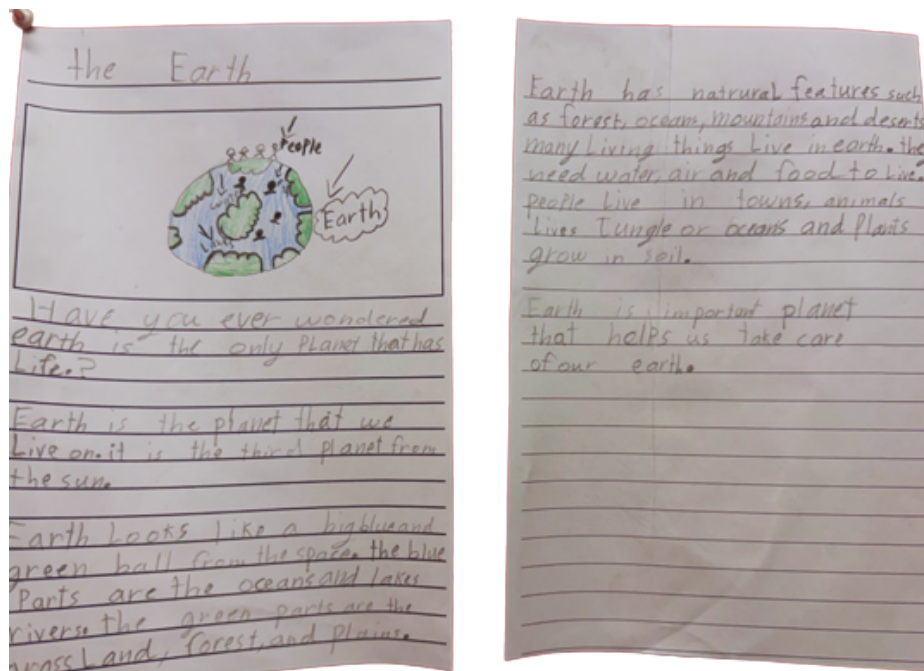 the Earth
People
Earth
Have you ever wondered
earth is the only Planet that has
Life.?
Earth is the planet that we
Live on. it is the third planet from
the sun.
Earth Looks like a big blue and
green ball from the space. the blue
Parts are the oceans and lakes
rivers. the green parts are the
grass Land, forest, and plains.
Earth has natrural features such
as forest, oceans, mountains and deserts
many Living things Live in earth. the
need water, air and food to Live.
people Live in towns, animals
Lives Jungle or oceans and Plants
grow in soil.
Earth is important planet
that holps us take care
of our earth.